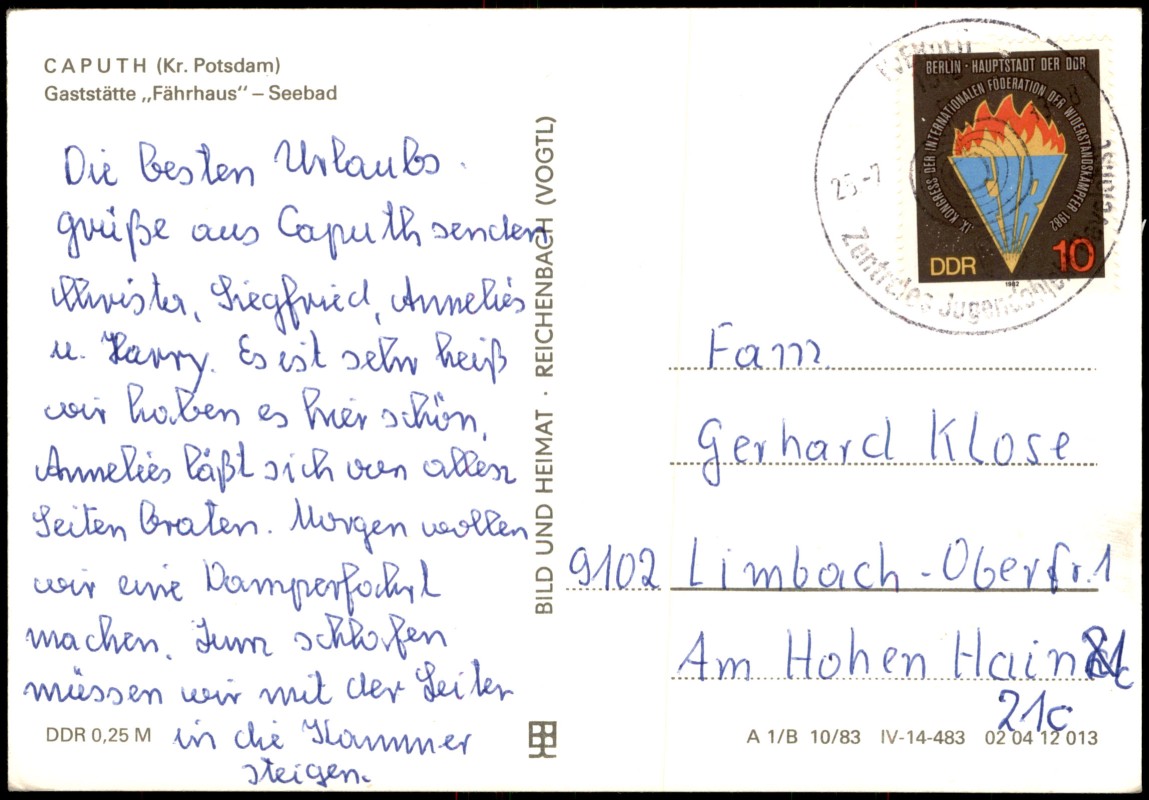 CAPUTH (Kr. Potsdam)
Gaststätte „Fährhaus" – Seebad
Die besten Urlaubs-
grüße aus Caputh senden
Christa, Siegfried, Annelies
u. Harry. Es ist sehr heiß
wir haben es hier schön,
Annelies läßt sich von allen
Seiten braten. Morgen wollen
wir eine Dampferfahrt
machen. Zum schlafen
müssen wir mit der Leiter
in die Kammer
steigen.
DDR 0,25 M
BILD UND HEIMAT · REICHENBACH (VOGTL)
BERLIN · HAUPTSTADT DER DDR
IX. KONGRESS DER INTERNATIONALEN FÖDERATION DER WIDERSTANDSKÄMPFER 1982
FIR
DDR 10
1982
25.-7
Zentrales Jugendobjekt
Fam.
Gerhard Klose
9102 Limbach-Oberfr. 1
Am Hohen Hain
21c
A 1/B 10/83 IV-14-483 02 04 12 013